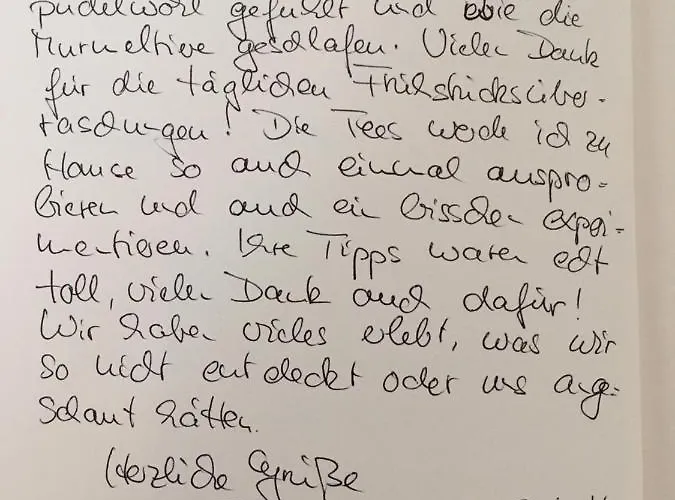 pudelwohl gefühlt und wie die
Murmeltiere geschlafen. Vielen Dank
für die täglichen Frühstücksüber-
raschungen! Die Tees werde ich zu
Hause so auch einmal auspro-
bieren und auch ein bisschen experi-
mentieren. Ihre Tipps waren echt
toll, vielen Dank auch dafür!
Wir haben vieles erlebt, was wir
so nicht entdeckt oder uns ange-
schaut hätten.
Herzliche Grüße